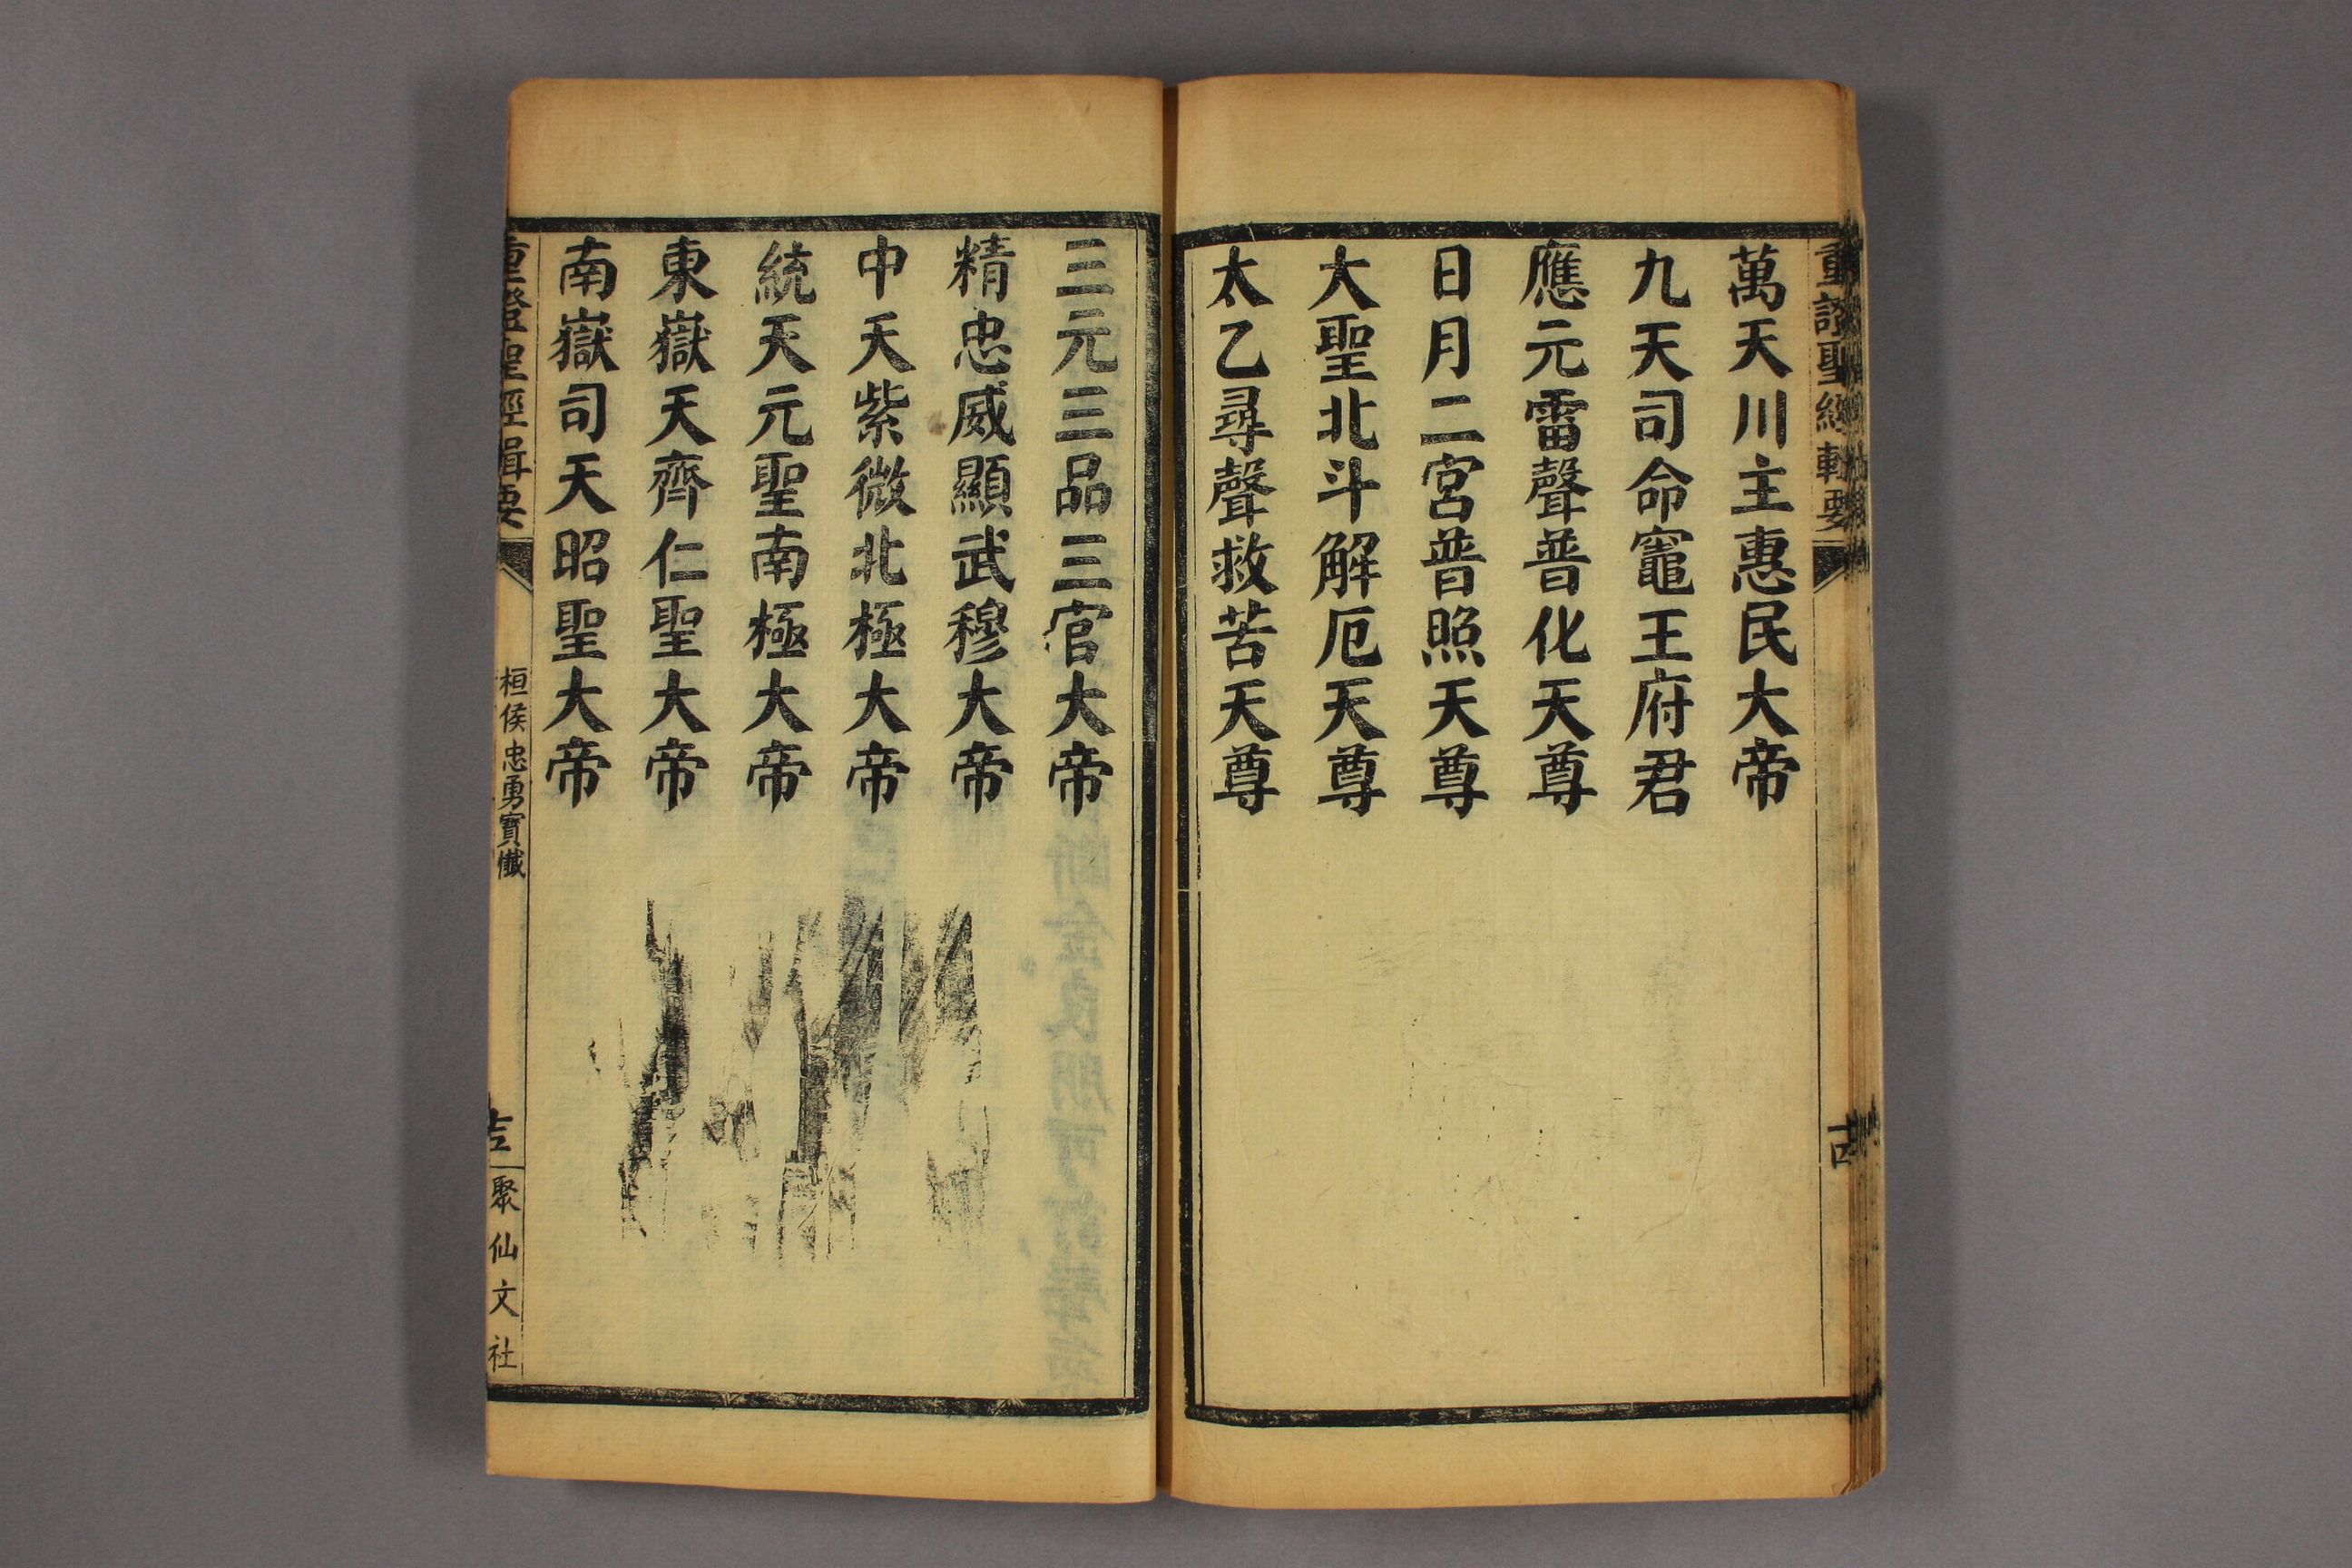 重證聖經輯要
萬天川主惠民大帝
九天司命竈王府君
應元雷聲普化天尊
日月二宮普照天尊
大聖北斗解厄天尊
太乙尋聲救苦天尊
三元三品三官大帝
精忠威顯武穆大帝
中天紫微北極大帝
統天元聖南極大帝
東嶽天齊仁聖大帝
南嶽司天昭聖大帝
重證聖經輯要
桓侯忠勇寶懺
聚仙文社